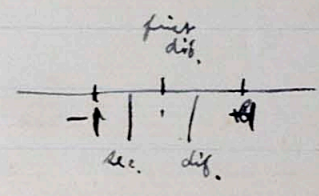 first
dif.
-1
sec. dif.